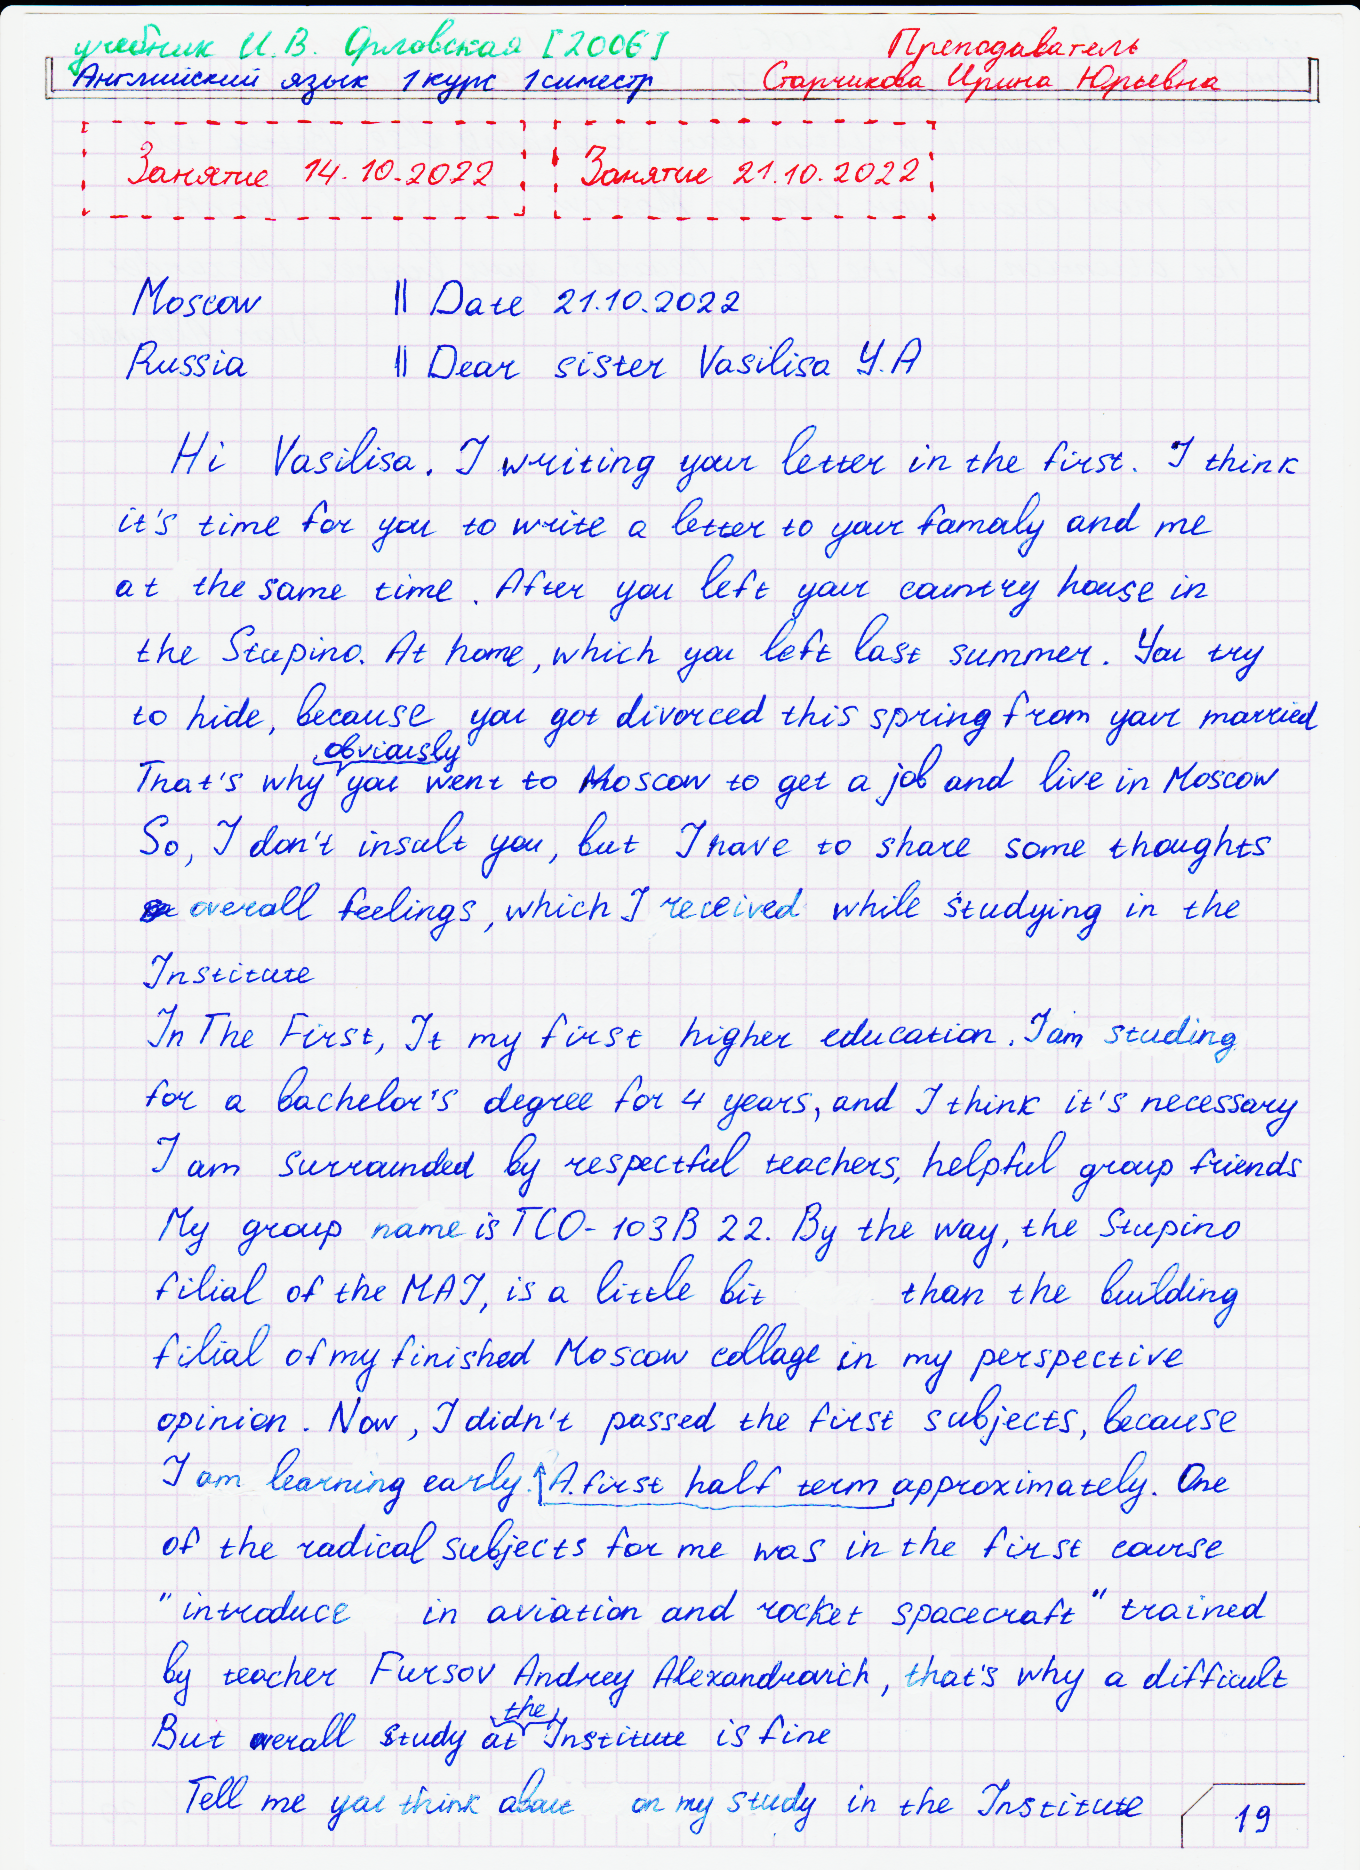 учебник И.В. Орловская [2006] Преподаватель
Английский язык 1 курс 1 симестр Старчикова Ирина Юрьевна
Занятие 14.10.2022 Занятие 21.10.2022
Moscow || Date 21.10.2022
Russia || Dear sister Vasilisa Y.A
Hi Vasilisa. I writing your letter in the first. I think
it's time for you to write a letter to your famaly and me
at the same time. After you left your country house in
the Stupino. At home, which you left last summer. You try
to hide, because you got divorced this spring from your married
obviously
That's why you went to Moscow to get a job and live in Moscow
So, I don't insult you, but I have to share some thoughts
overall feelings, which I received while studying in the
Institute
In The First, It my first higher education. I am studing
for a bachelor's degree for 4 years, and I think it's necessary
I am surrounded by respectful teachers, helpful group friends
My group name is TCO-103B 22. By the way, the Stupino
filial of the MAI, is a little bit than the building
filial of my finished Moscow collage in my perspective
opinion. Now, I didn't passed the first subjects, because
I am learning early. A first half term approximately. One
of the radical subjects for me was in the first course
"introduce in aviation and rocket spacecraft" trained
by teacher Fursov Andrey Alexandrovich, that's why a difficult
the
But overall study at Institute is fine
Tell me you think about on my study in the Institute
19